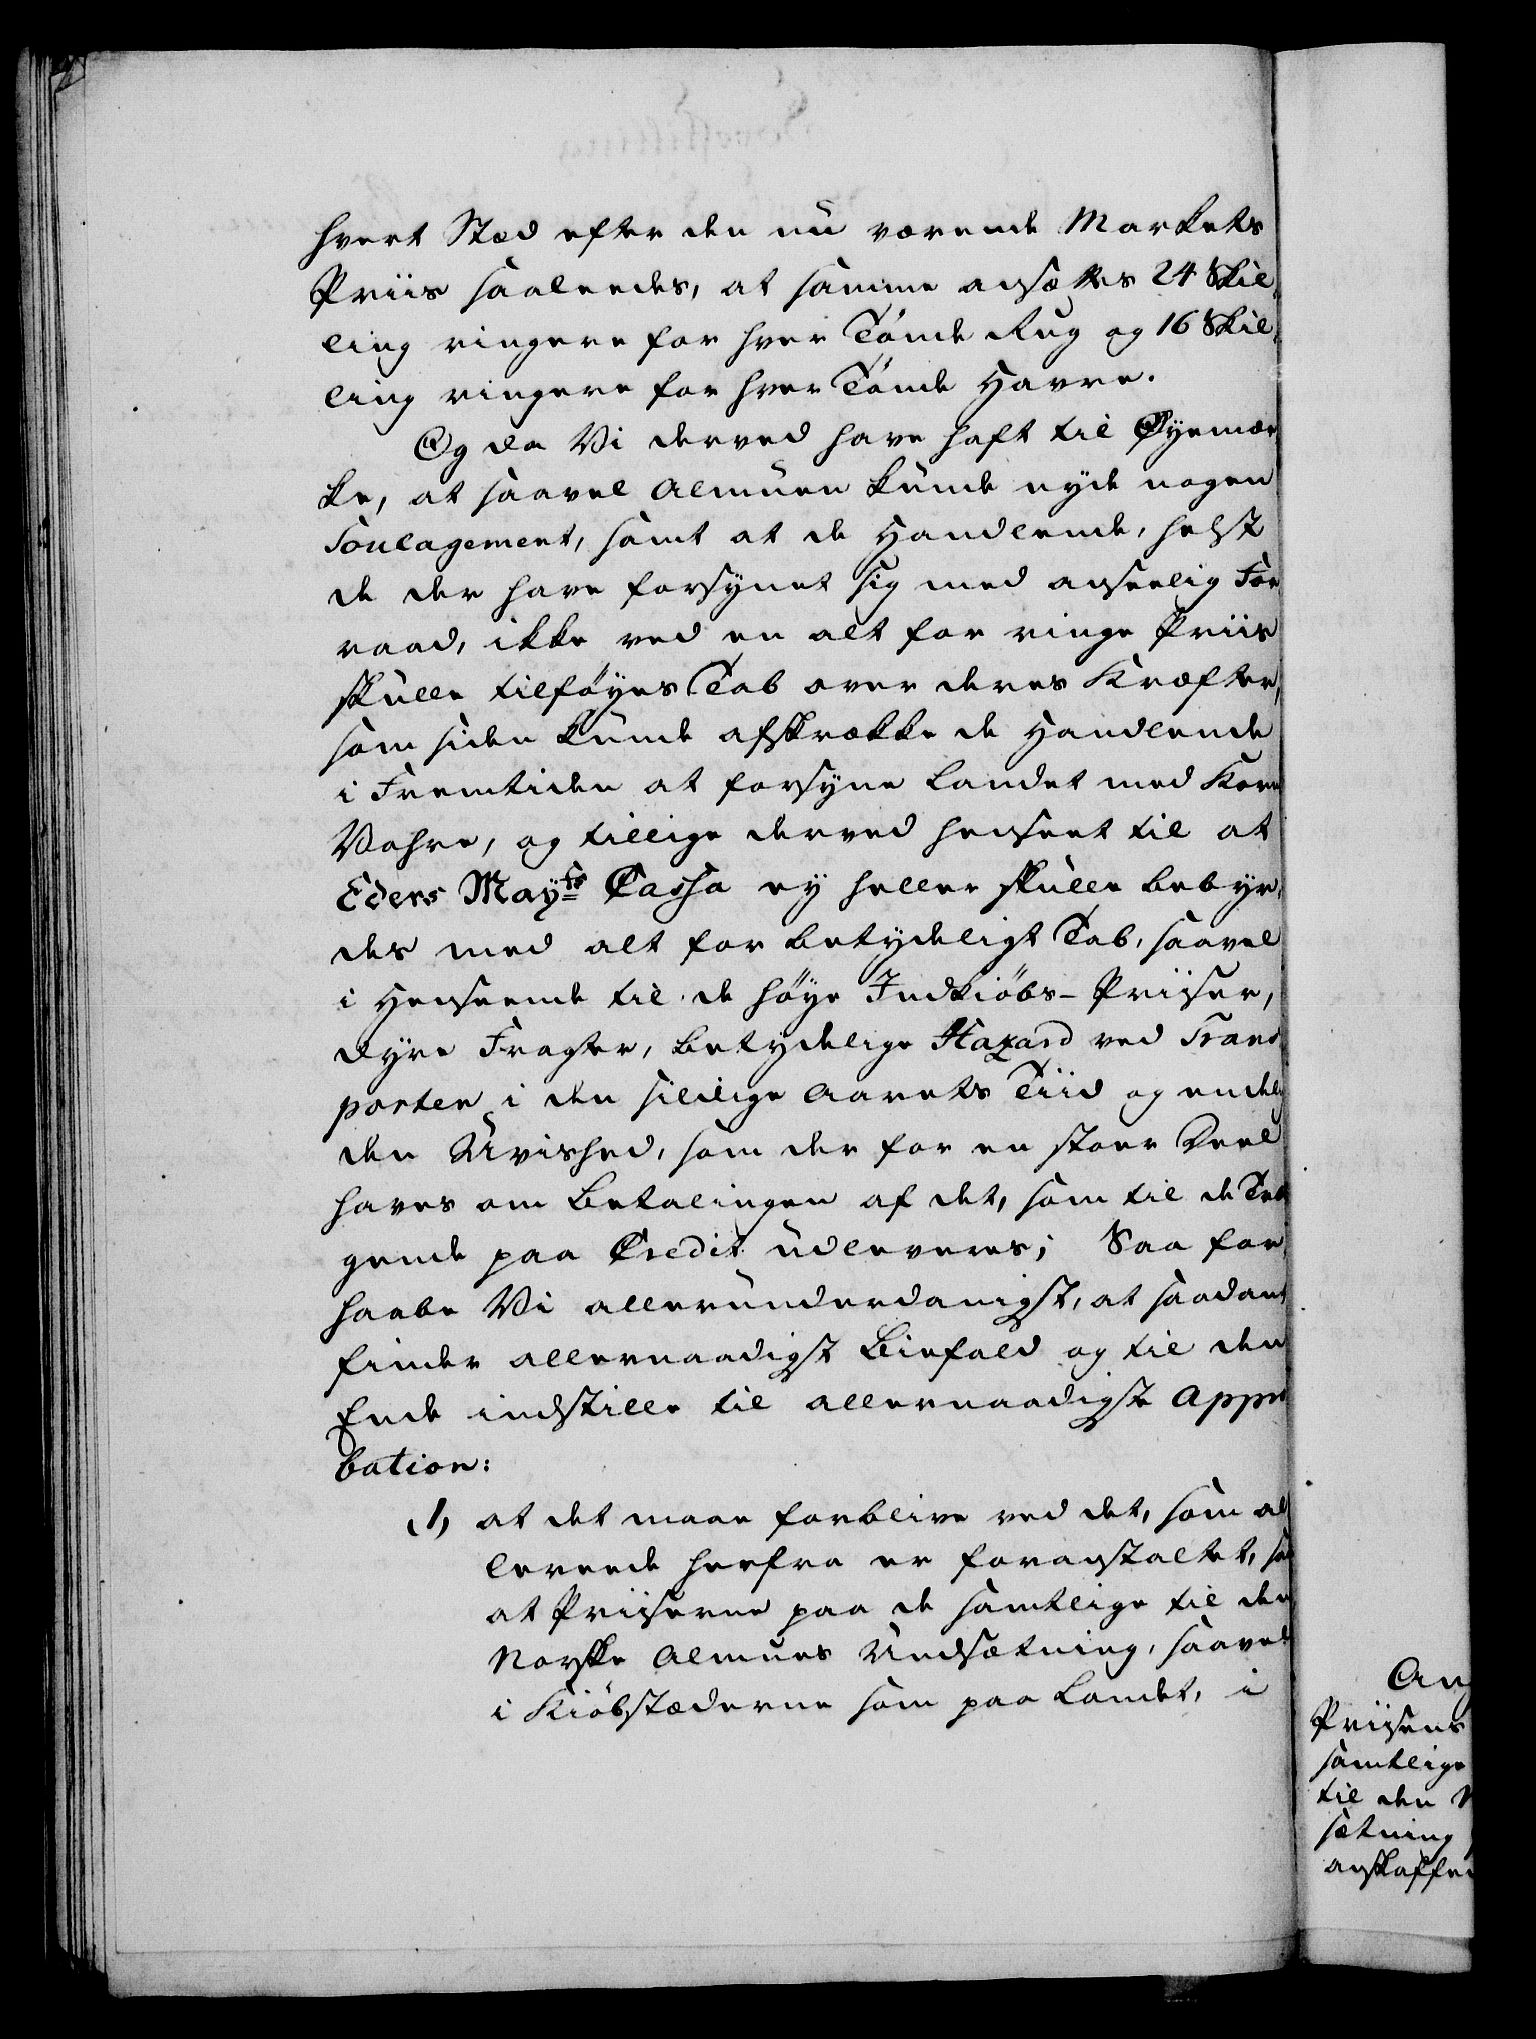 hvert Stæd efter den nu værende Markets
Priis saaleedes, at samme ansættes 24 Skil,
ling ringere for hver Tønde Rug og 16 Skil,
ling ringere for hver Tønde Havre.
Og da Vi derved have haft til Øyemær
ke, at saavel Almuen kunde nyde nogen
Soulagement, samt at de Handlende, helst
de der have forsynet sig med anseelig For
raad, ikke ved en alt for ringe Priis
skulle tilføyes Tab over deres Kræfter,
som siden kunde afskrække de Handlende
i Fremtiden at forsyne Landet med Korn
Vahre, og tillige derved henseet til at
Eders May:ts Cassa ey heller skulle bebyr,
des med alt for betydeligt Tab, saavel
i Henseende til de høye Indkiøbs-Priiser,
dyre Fragter, betydelige Hazard ved Trans
porten i den sildige Aarets Tiid og endelig
den Uvished, som der for en stoer Deel
haves om Betalingen af det, som til de Træn
gende paa Credit udleveres; Saa for
haabe Vi allerunderdanigst, at saadant
finder allernaadigst Biefald og til den
Ende indstille til allernaadigste Appro
bation:
1, at det maae forblive ved det, som al
lereede herfra er foranstaltet, saa
at Priiserne paa de samtlige til den
Norske Almues Undsætning, saavel
i Kiøbstæderne som paa Landet, i
Priisens
samtlige
til den
sætning